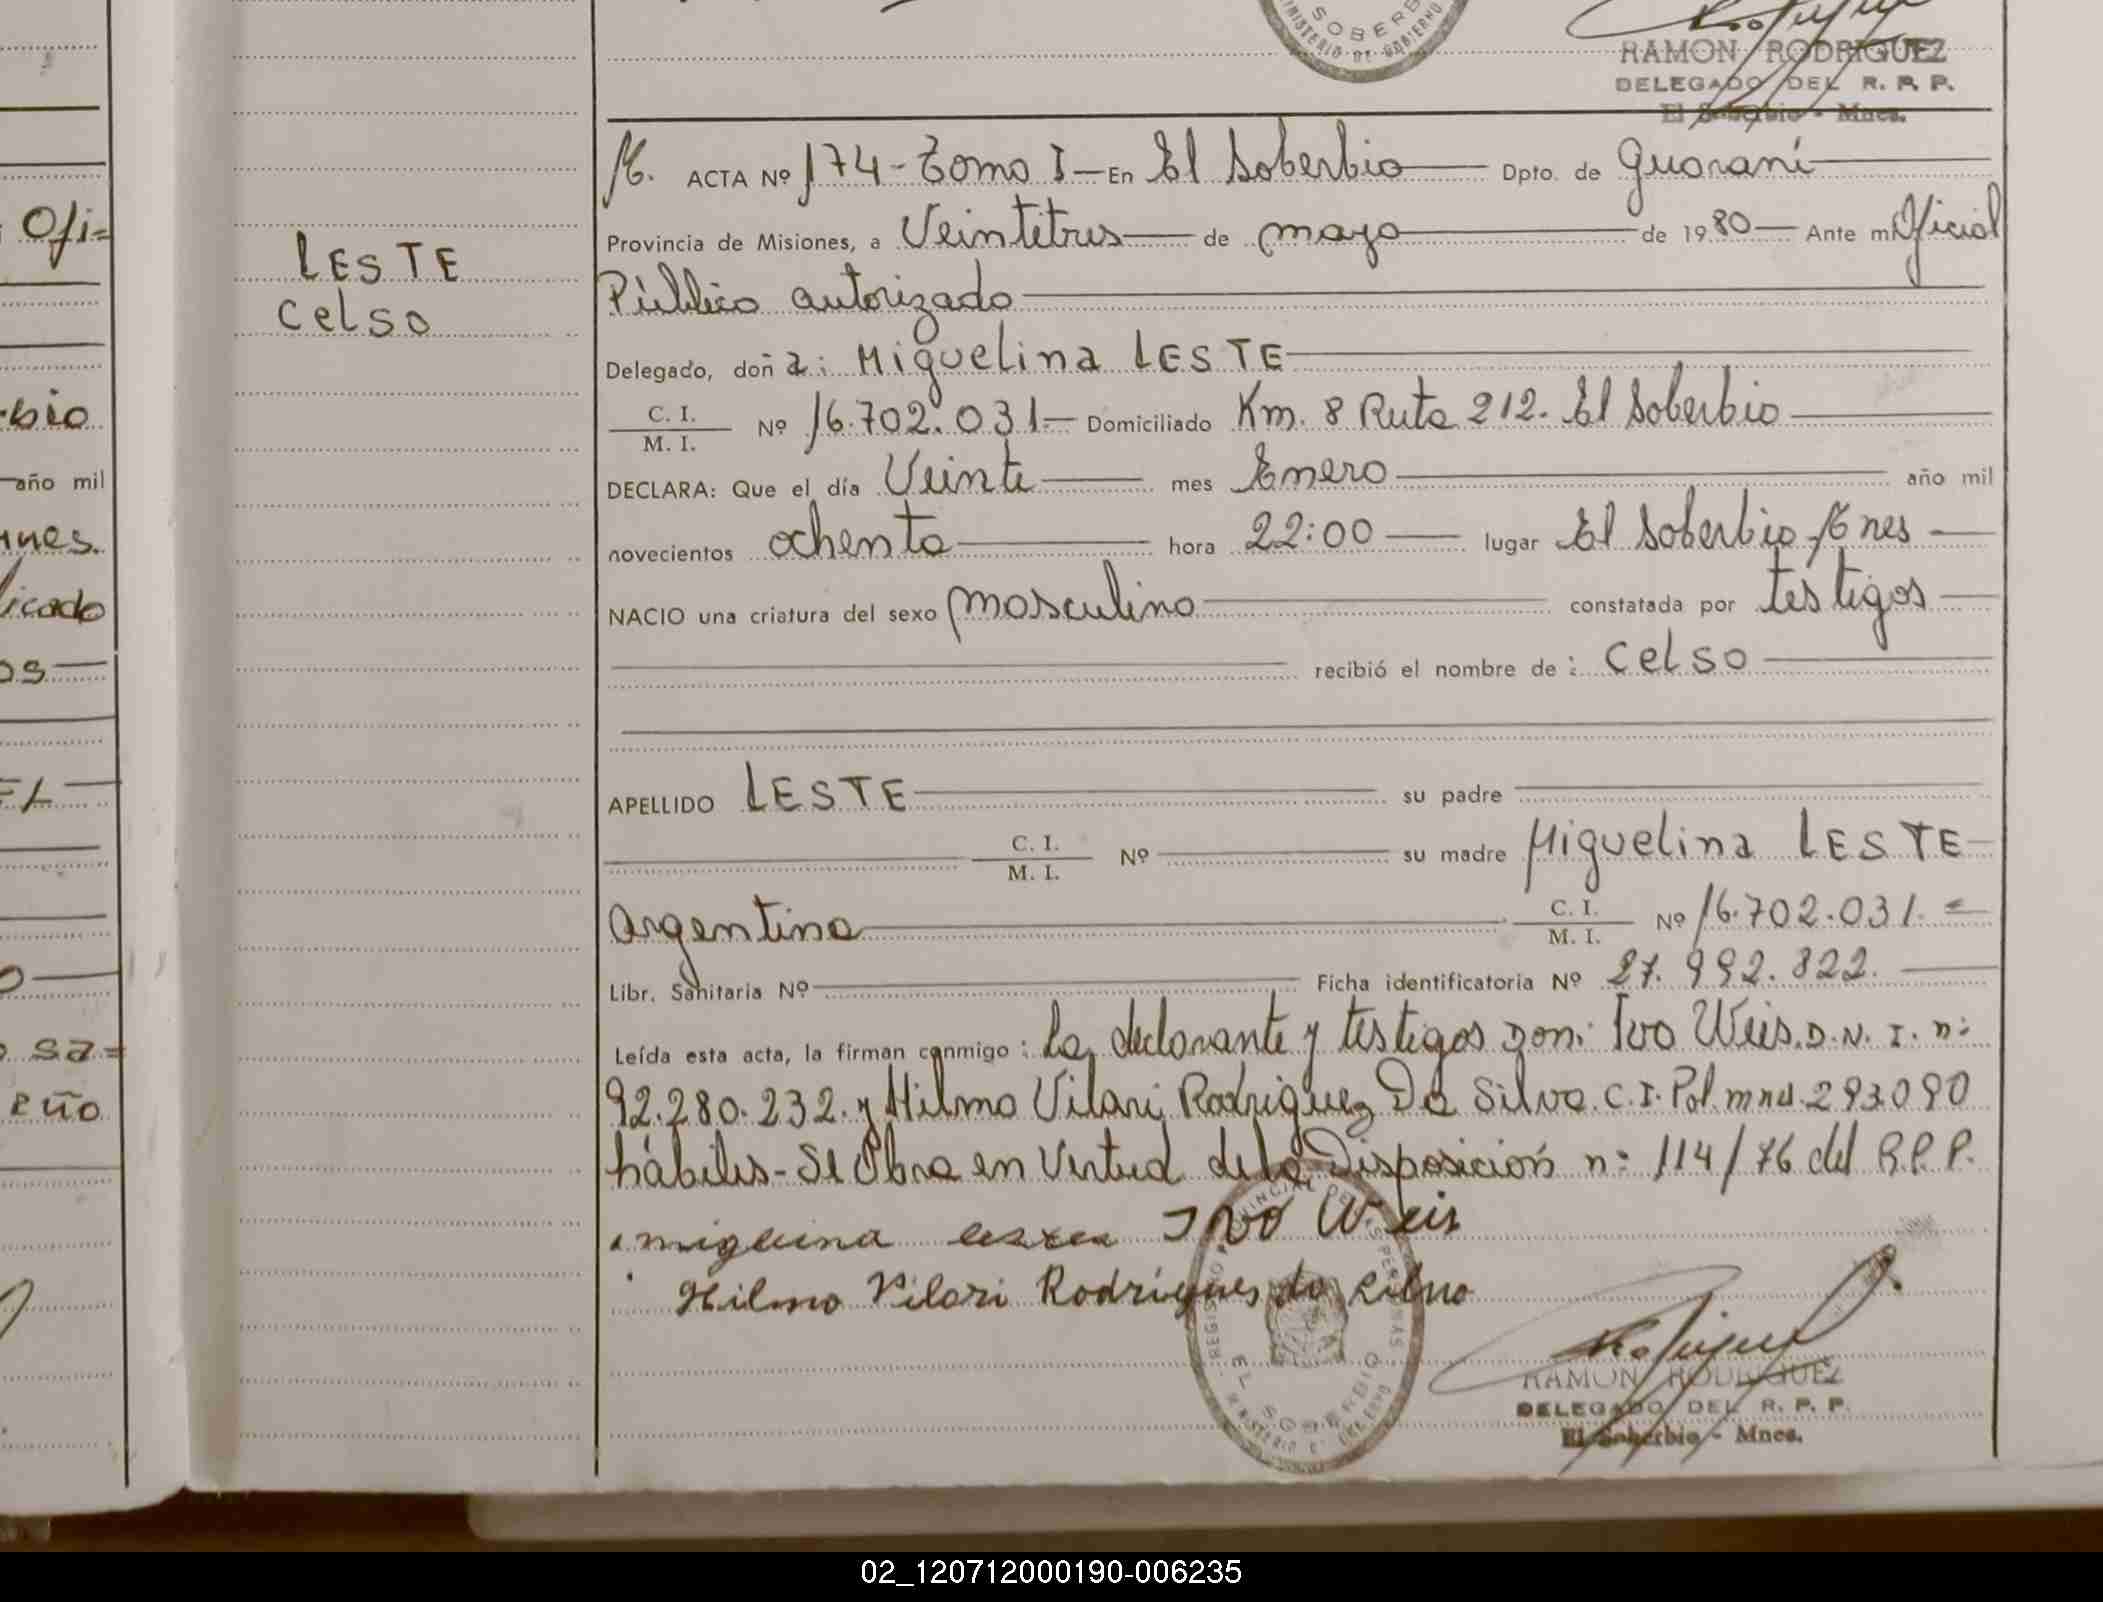 SOBERB
MINISTERIO DE GOBIERNO
RAMON RODRIGUEZ
DELEGADO DEL R. P. P.
El Soberbio - Mnes.
Ofi=
bio
año mil
nes.
icado
os
EL
o sa=
eño
LESTE
Celso
M. ACTA Nº 174 - Tomo I - En El Soberbio Dpto. de Guaraní
Provincia de Misiones, a Veintitres de mayo de 1980 - Ante mí Oficial
Público autorizado
Delegado, doña: Miguelina LESTE
C. I.
M. I. Nº 16.702.031.- Domiciliado Km. 8 Ruta 212. El Soberbio
DECLARA: Que el día Veinte mes Enero año mil
novecientos ochenta hora 22:00 lugar El Soberbio Mnes
NACIO una criatura del sexo masculino constatada por testigos
recibió el nombre de: Celso
APELLIDO LESTE su padre
C. I.
M. I. Nº su madre Miguelina LESTE
Argentina C. I.
M. I. Nº 16.702.031.=
Libr. Sanitaria Nº Ficha identificatoria Nº 27.992.822.
Leída esta acta, la firman conmigo: la declarante y testigos Don: Ivo Weis. D.N.I. nº
92.280.232. y Hilmo Vilari Rodriguez Da Silva. C.I. Pol. mnes. 293.090
hábiles - Se Obra en Virtud de la Disposición nº 114/76 del R.P.P.
Ivo Weis
Hilmo Vilari Rodrigues da Silva
REGISTRO PROVINCIAL DE LAS PERSONAS
EL SOBERBIO
MINISTERIO DE GOBIERNO
RAMON RODRIGUEZ
DELEGADO DEL R. P. P.
El Soberbio - Mnes.
02_120712000190-006235